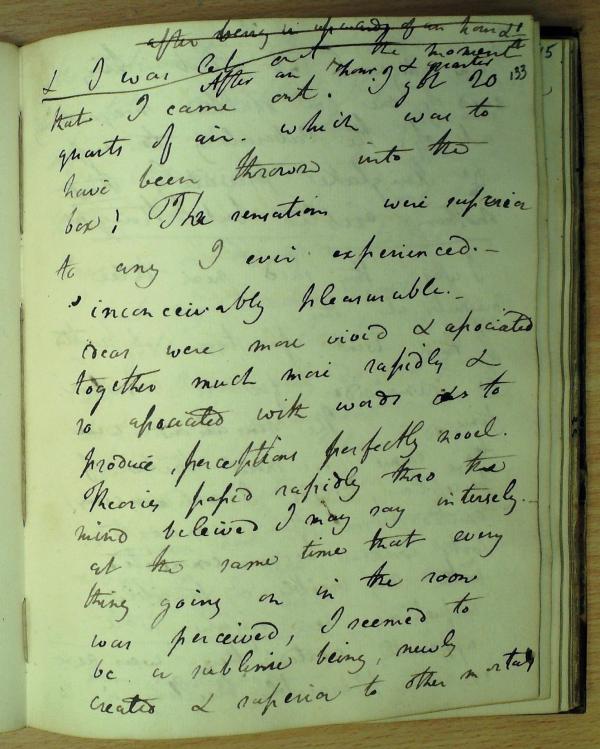 after being in upwards of an hour &
& I was let out the moment
After an hour & quarter
that I came out. I got 20
133
15
quarts of air. which was to
have been thrown into the
box! The sensations were superior
to any I ever experienced.-
inconceivably pleasurable.-
ideas were more vivid & associated
together much more rapidly &
so associated with words as to
produce perceptions perfectly novel.
Theories passed rapidly thro the
mind beleived I may say intensely.-
at the same time that every
thing going on in the room
was perceived, I seemed to
be a sublime being, newly
created & superior to other mortals